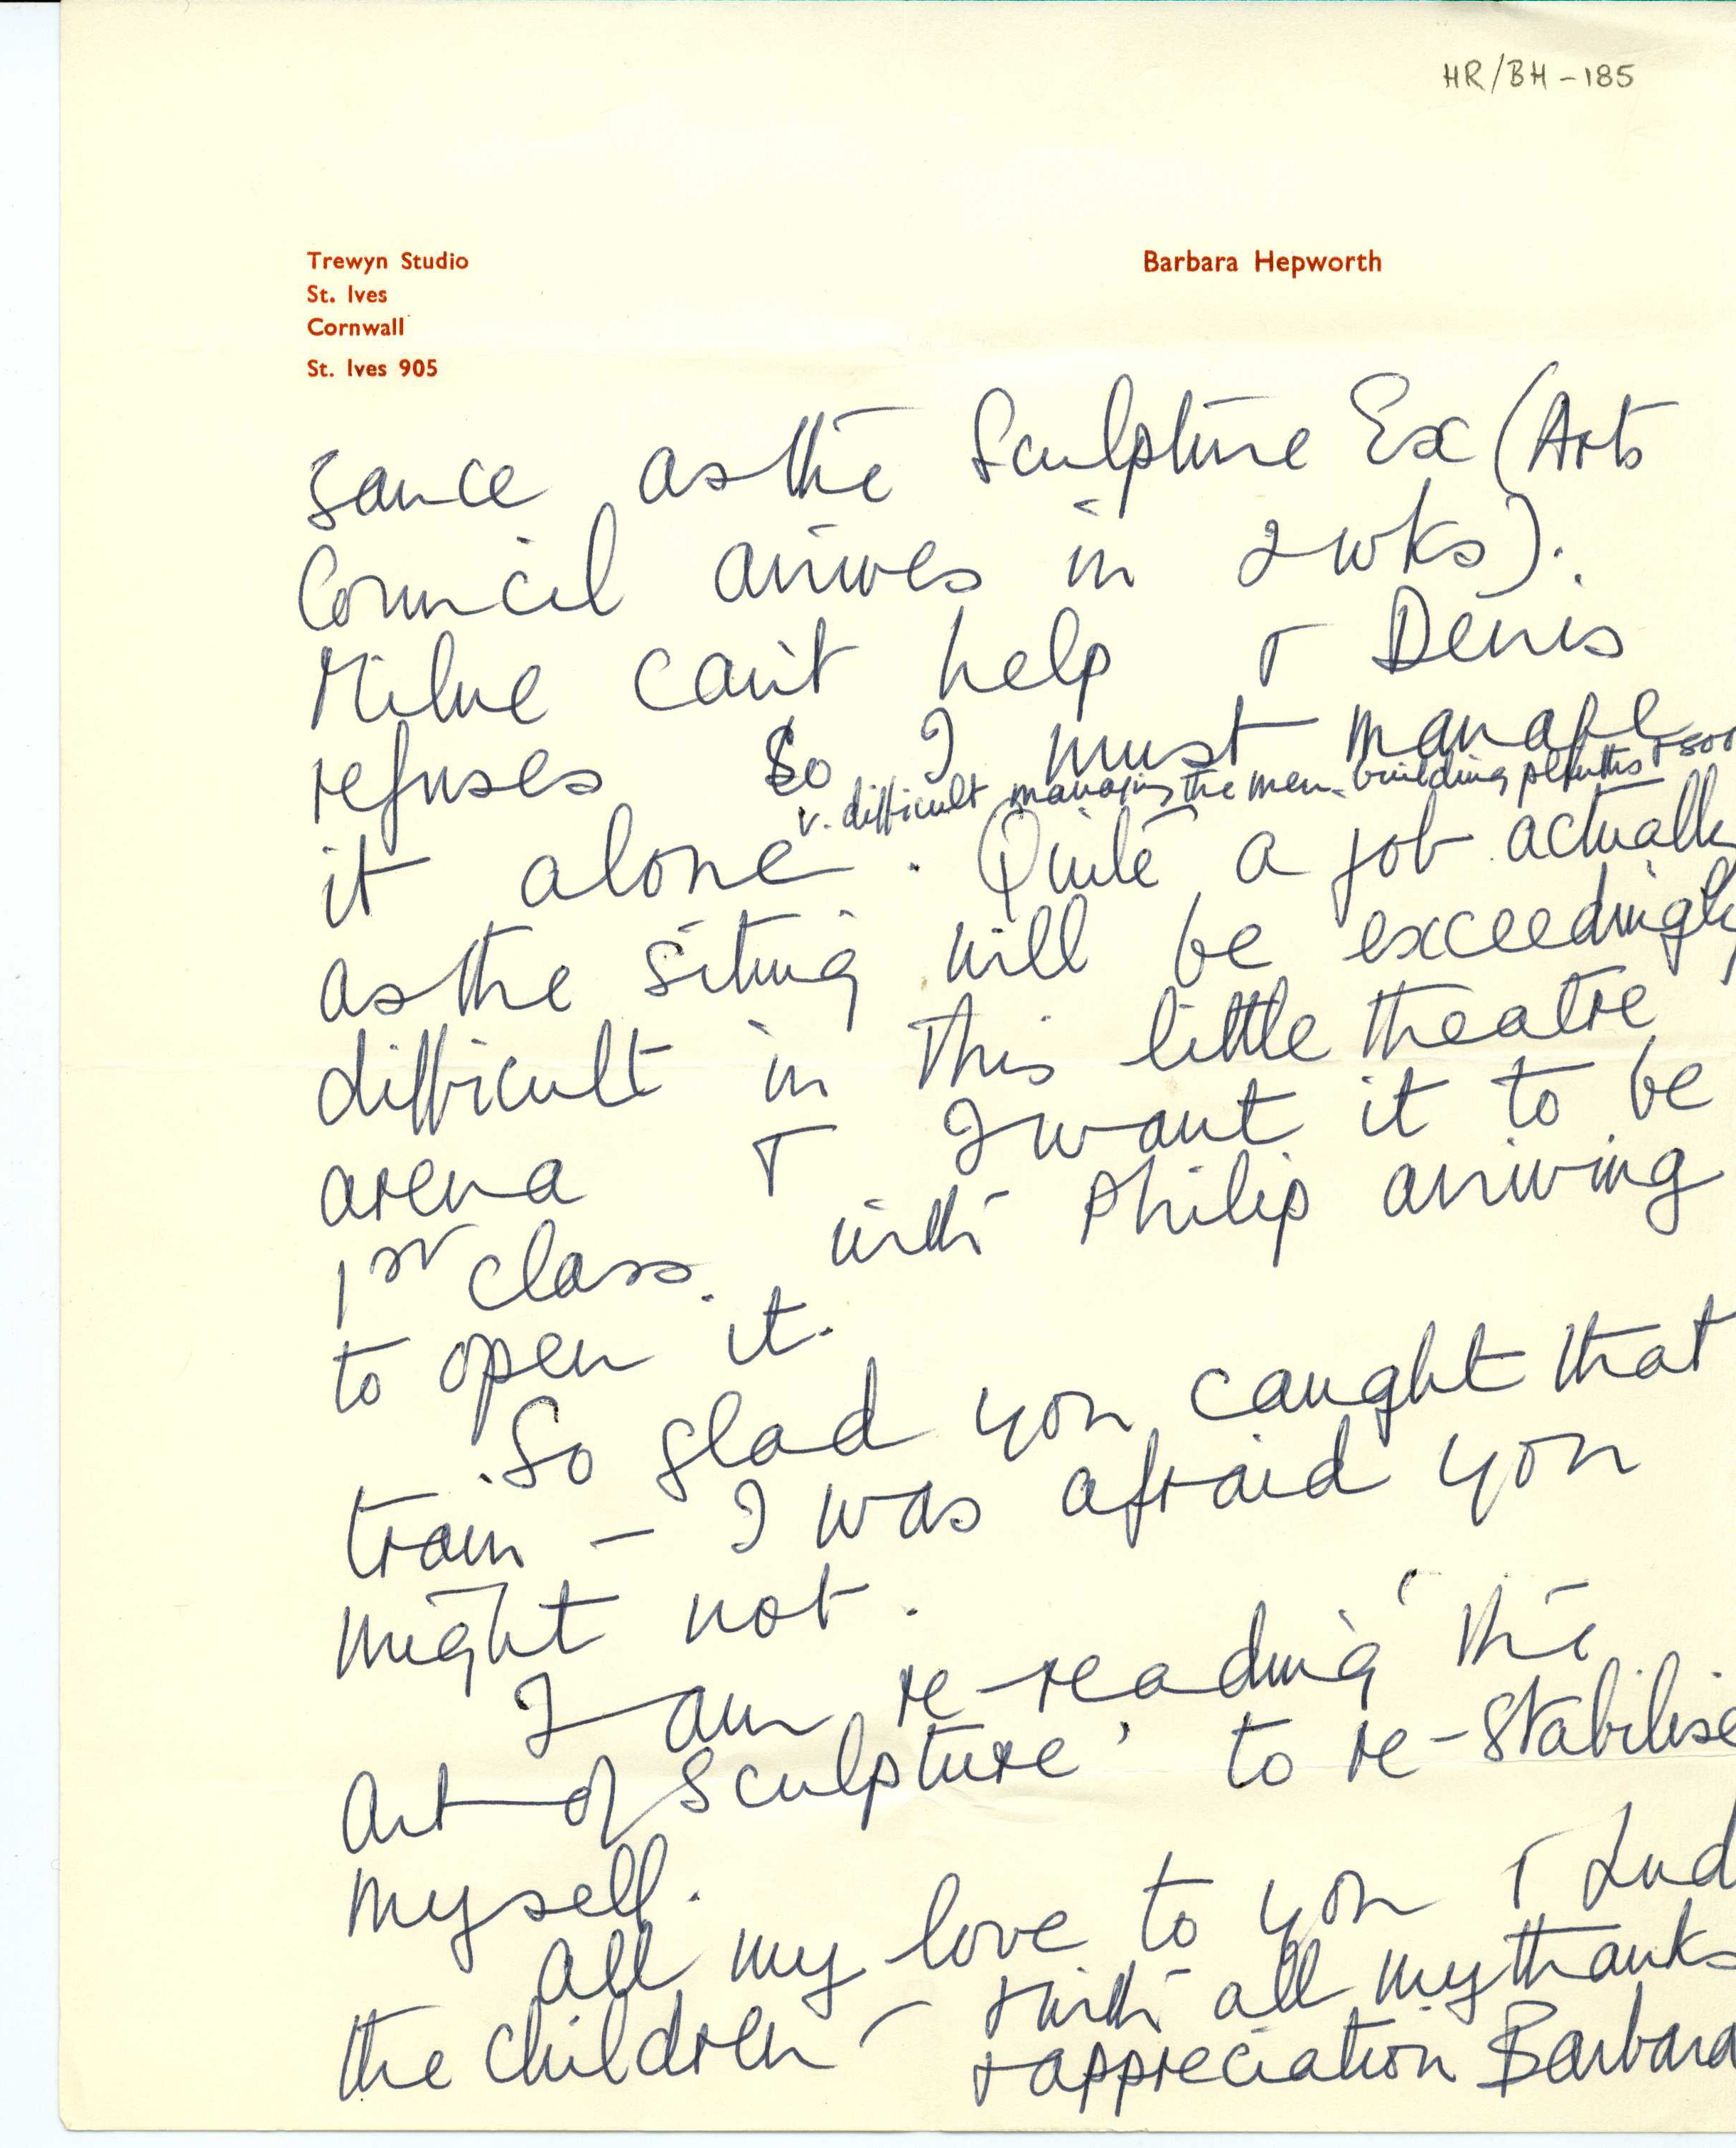 HR/BH-185
Trewyn Studio
St. Ives
Cornwall
St. Ives 905
Barbara Hepworth
sance as the Sculpture Ex (Arts
Council arrives in 2 wks).
Milne can't help + Denis
refuses So I must manage
v. difficult managing the men, building plinths + soo
it alone. Quite a job actually
as the siting will be exceedingly
difficult in this little theatre
arena + I want it to be
1st class. with Philip arriving
to open it.
So glad you caught that
train – I was afraid you
might not.
I am re-reading 'the
Art of Sculpture' to re-stabilise
myself.
All my love to you + Lud
the children – + with all my thanks
+ appreciation Barbara